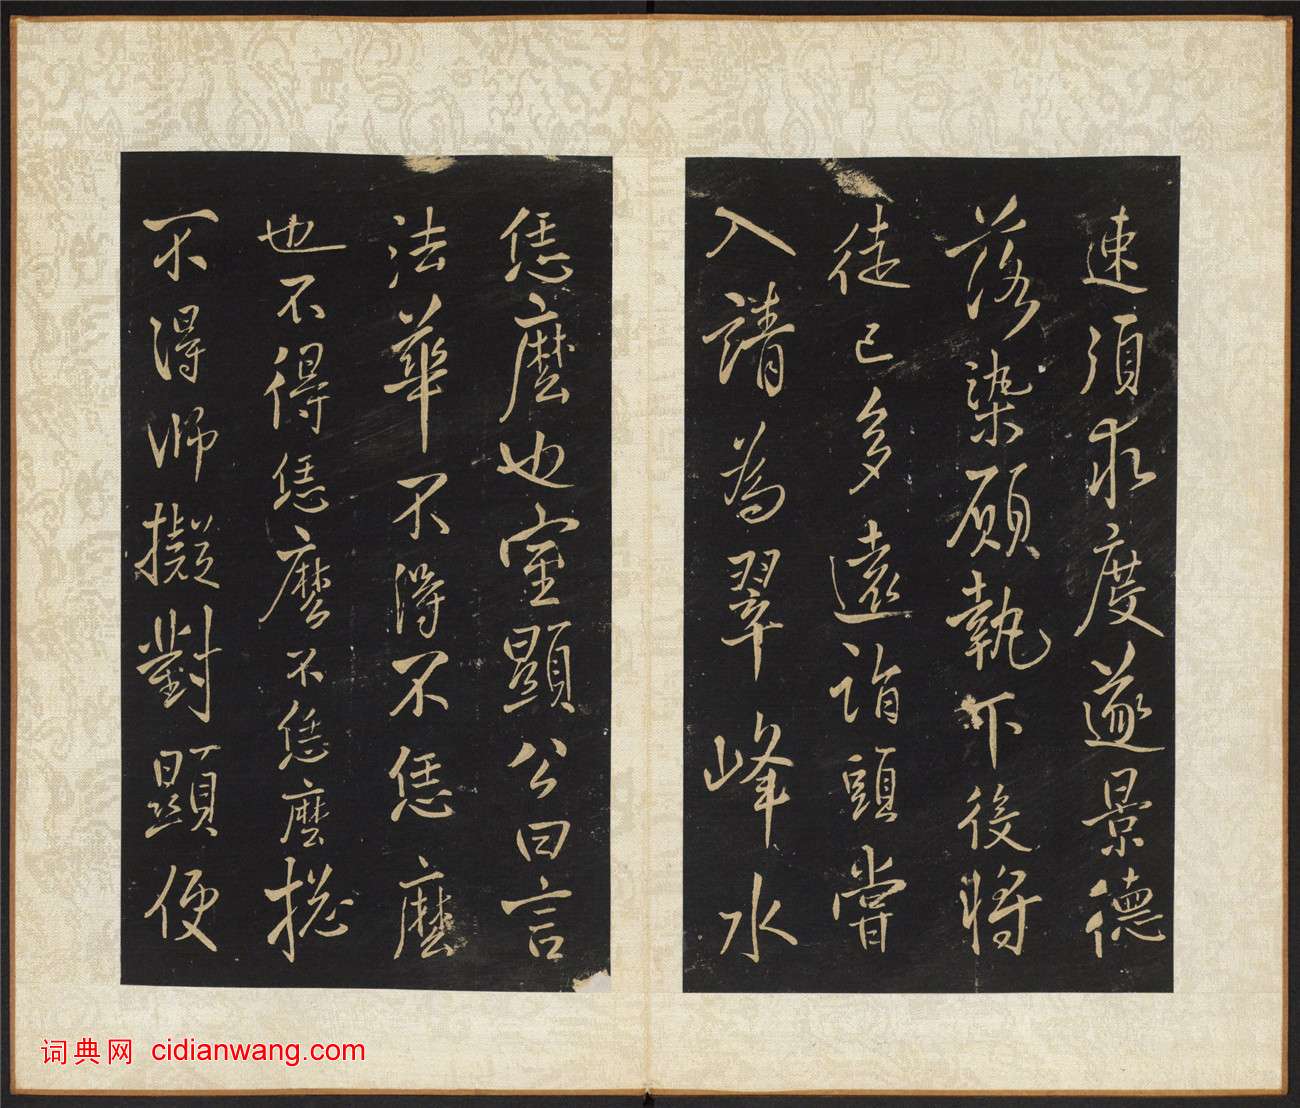 速須求度遂景德
落染願執下後將
徒已多遠詣頭嘗
入請為翠峰水
恁麼也室顯公曰言
法華不得不恁麼
也不得恁麼不恁麼揔
不得師擬對顯便
词典网 cidianwang.com